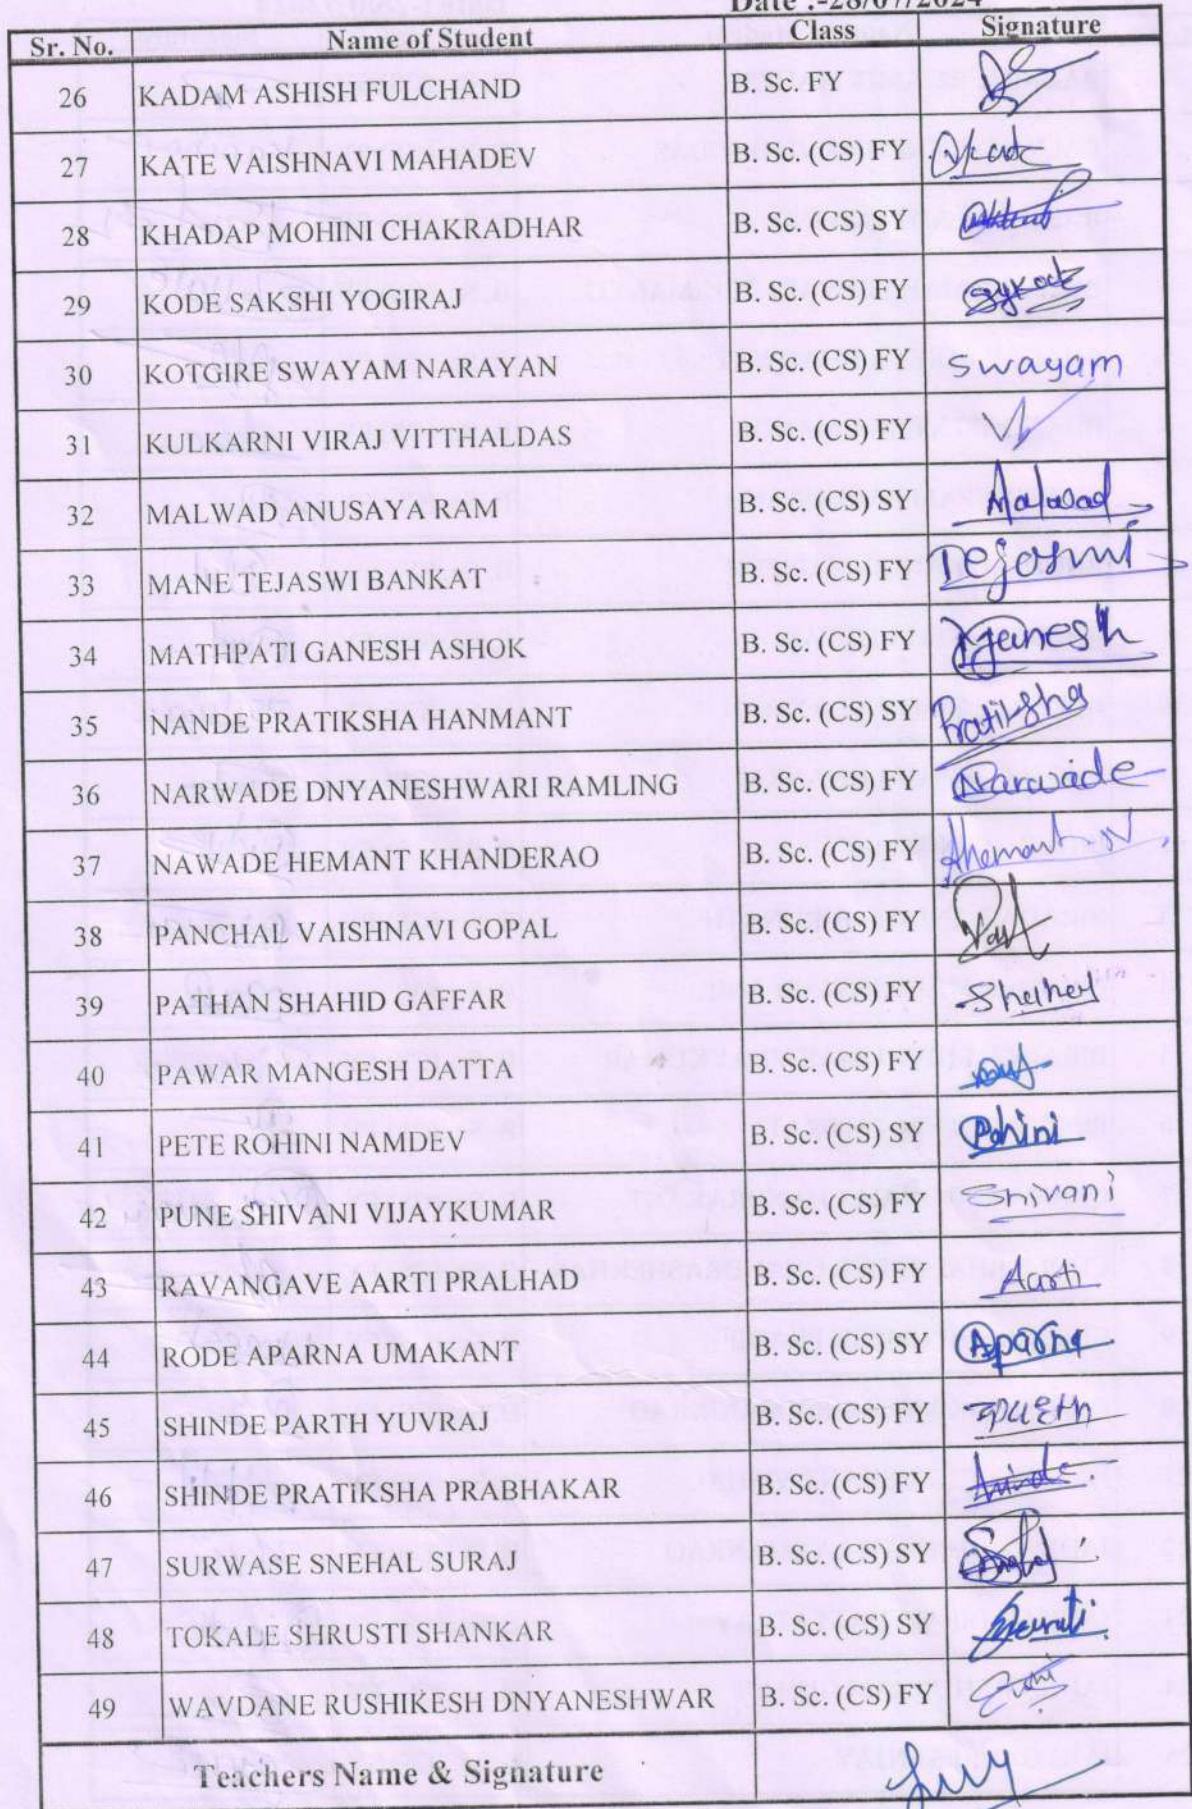 Date :-28/07/2024
Sr. No. Name of Student Class Signature
26 KADAM ASHISH FULCHAND B. Sc. FY
27 KATE VAISHNAVI MAHADEV B. Sc. (CS) FY
28 KHADAP MOHINI CHAKRADHAR B. Sc. (CS) SY
29 KODE SAKSHI YOGIRAJ B. Sc. (CS) FY
30 KOTGIRE SWAYAM NARAYAN B. Sc. (CS) FY Swayam
31 KULKARNI VIRAJ VITTHALDAS B. Sc. (CS) FY
32 MALWAD ANUSAYA RAM B. Sc. (CS) SY Malwad
33 MANE TEJASWI BANKAT B. Sc. (CS) FY
34 MATHPATI GANESH ASHOK B. Sc. (CS) FY Ganesh
35 NANDE PRATIKSHA HANMANT B. Sc. (CS) SY Pratiksha
36 NARWADE DNYANESHWARI RAMLING B. Sc. (CS) FY Narwade
37 NAWADE HEMANT KHANDERAO B. Sc. (CS) FY
38 PANCHAL VAISHNAVI GOPAL B. Sc. (CS) FY
39 PATHAN SHAHID GAFFAR B. Sc. (CS) FY
40 PAWAR MANGESH DATTA B. Sc. (CS) FY
41 PETE ROHINI NAMDEV B. Sc. (CS) SY Rohini
42 PUNE SHIVANI VIJAYKUMAR B. Sc. (CS) FY Shivani
43 RAVANGAVE AARTI PRALHAD B. Sc. (CS) FY Aarti
44 RODE APARNA UMAKANT B. Sc. (CS) SY Aparna
45 SHINDE PARTH YUVRAJ B. Sc. (CS) FY
46 SHINDE PRATIKSHA PRABHAKAR B. Sc. (CS) FY
47 SURWASE SNEHAL SURAJ B. Sc. (CS) SY
48 TOKALE SHRUSTI SHANKAR B. Sc. (CS) SY
49 WAVDANE RUSHIKESH DNYANESHWAR B. Sc. (CS) FY
Teachers Name & Signature